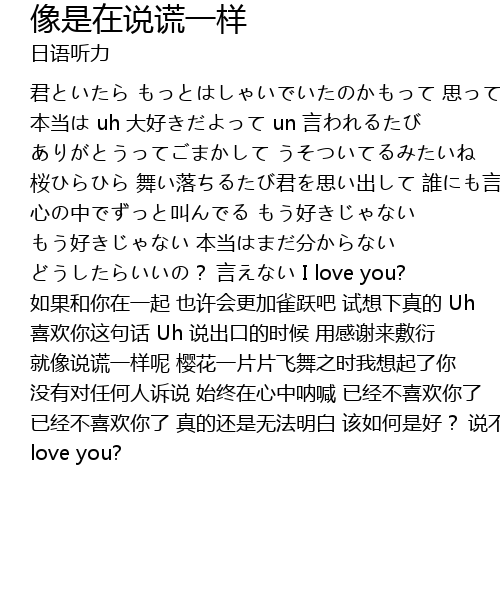 像是在说谎一样
日语听力
君といたら もっとはしゃいでいたのかもって 思って
本当は uh 大好きだよって un 言われるたび
ありがとうってごまかして うそついてるみたいね
桜ひらひら 舞い落ちるたび君を思い出して 誰にも言
心の中でずっと叫んでる もう好きじゃない
もう好きじゃない 本当はまだ分からない
どうしたらいいの？ 言えない I love you?
如果和你在一起 也许会更加雀跃吧 试想下真的 Uh
喜欢你这句话 Uh 说出口的时候 用感谢来敷衍
就像说谎一样呢 樱花一片片飞舞之时我想起了你
没有对任何人诉说 始终在心中呐喊 已经不喜欢你了
已经不喜欢你了 真的还是无法明白 该如何是好？ 说不
love you?